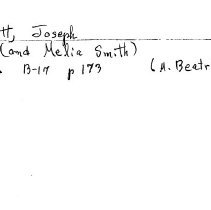 tt, Joseph
(and Melia Smith)
B-17 p 173 (M. Beatr